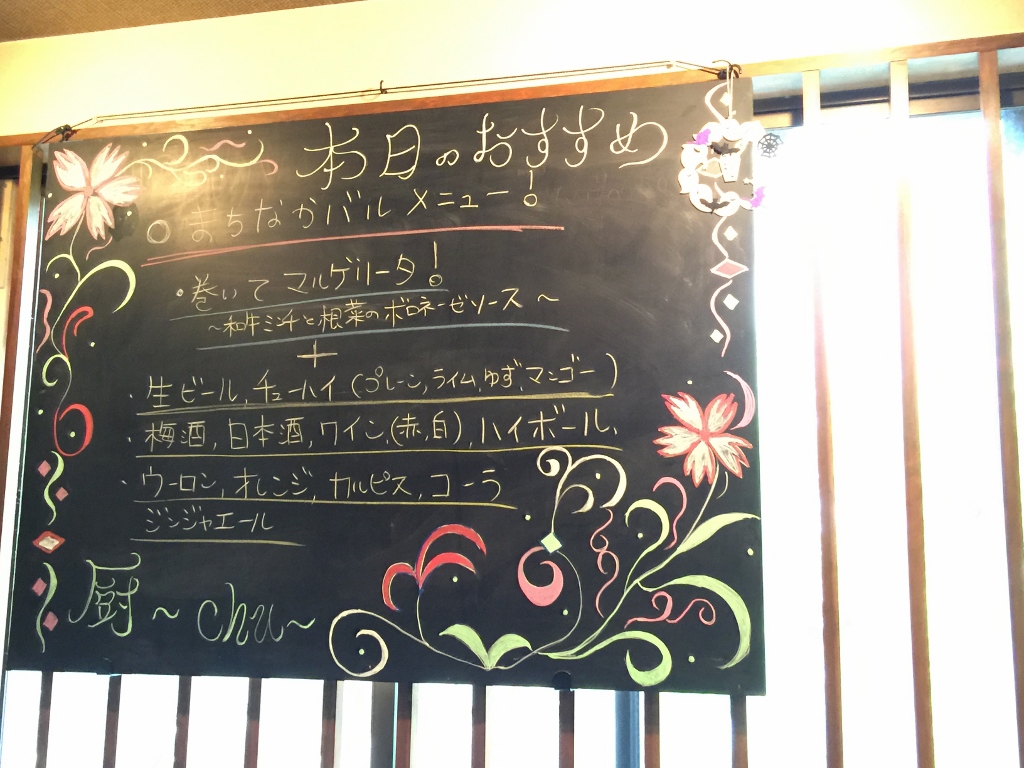 本日のおすすめ
○まちなかバルメニュー!
・巻いてマルゲリータ!
～和牛ミンチと根菜のボロネーゼソース～
+
・生ビール,チューハイ(プレーン,ライム,ゆず,マンゴー)
・梅酒,日本酒,ワイン,(赤,白),ハイボール,
・ウーロン,オレンジ,カルピス,コーラ
ジンジャエール
厨～chu～